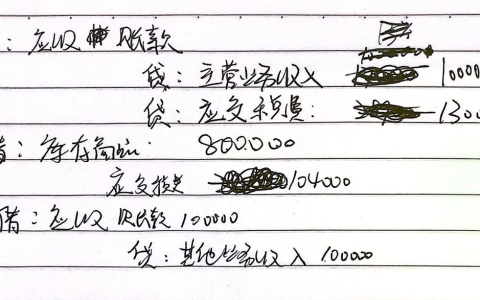 ：应收账款
贷：主营业务收入 10000
贷：应交税费： 1300
借：库存商品： 800000
应交税费 104000
借：应收账款 100000
贷：其他业务收入 100000